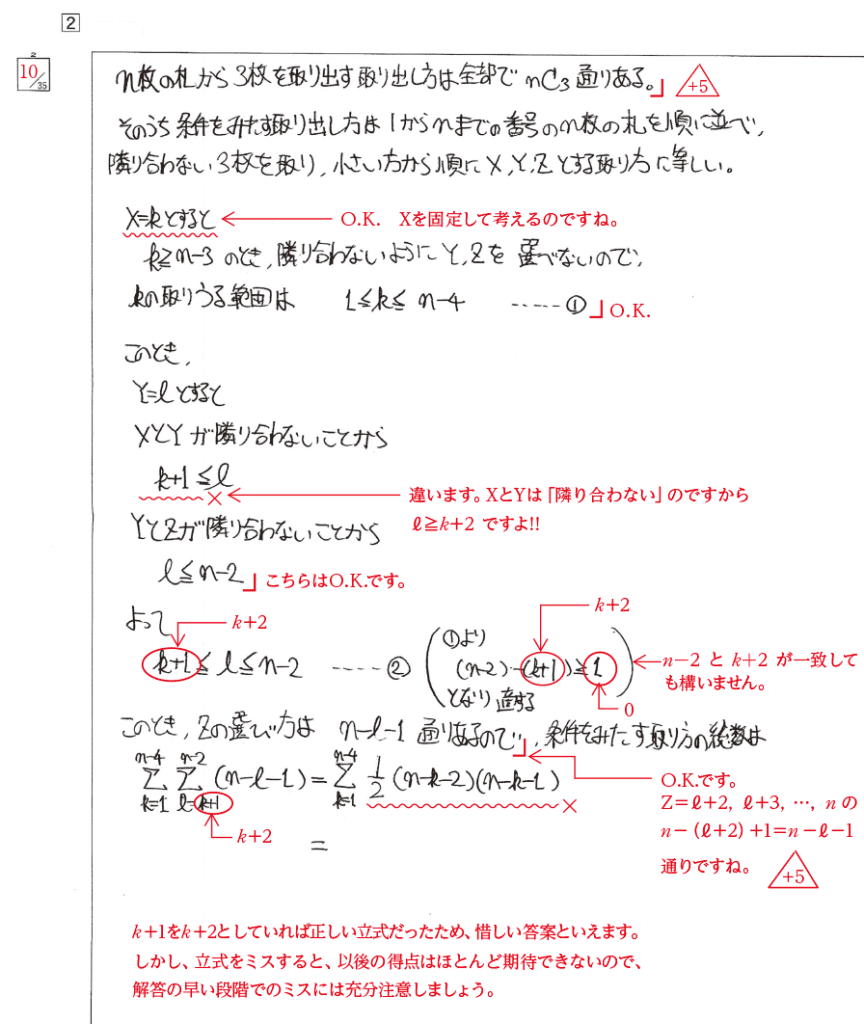 2
2
10/35
n枚の札から3枚を取り出す取り出し方は全部で nC3 通りある。」 +5
そのうち条件をみたす取り出し方は1からnまでの番号のn枚の札を順に並べ,
隣り合わない3枚を取り, 小さい方から順に X, Y, Z とする取り方に等しい。
X=kとすると ← O.K. Xを固定して考えるのですね。
k≧n-3 のとき, 隣り合わないように Y, Zを 選べないので,
kの取りうる範囲は 1≦k≦n-4 ……① 」O.K.
このとき,
Y=lとすると
XとYが隣り合わないことから
k+1≦l × ← 違います。XとYは「隣り合わない」のですから
ℓ≧k+2 ですよ!!
YとZが隣り合わないことから
l≦n-2 」こちらはO.K.です。
よって k+2 k+2
k+1≦l≦n-2 ……② (①より (n-2)-(k+1)≧1 となり 適する) ← n-2 と k+2 が一致して
も構いません。
0
このとき, Zの選び方は n-l-1 通りあるので」, 条件をみたす取り方の総数は
n-4Σk=1 n-2Σl=k+1 (n-l-1) = n-4Σk=1 1/2 (n-k-2)(n-k-1) × O.K.です。
Z=ℓ+2, ℓ+3, …, n の
k+2 n-(ℓ+2)+1=n-ℓ-1
= 通りですね。 +5
k+1をk+2としていれば正しい立式だったため、惜しい答案といえます。
しかし、立式をミスすると、以後の得点はほとんど期待できないので、
解答の早い段階でのミスには充分注意しましょう。